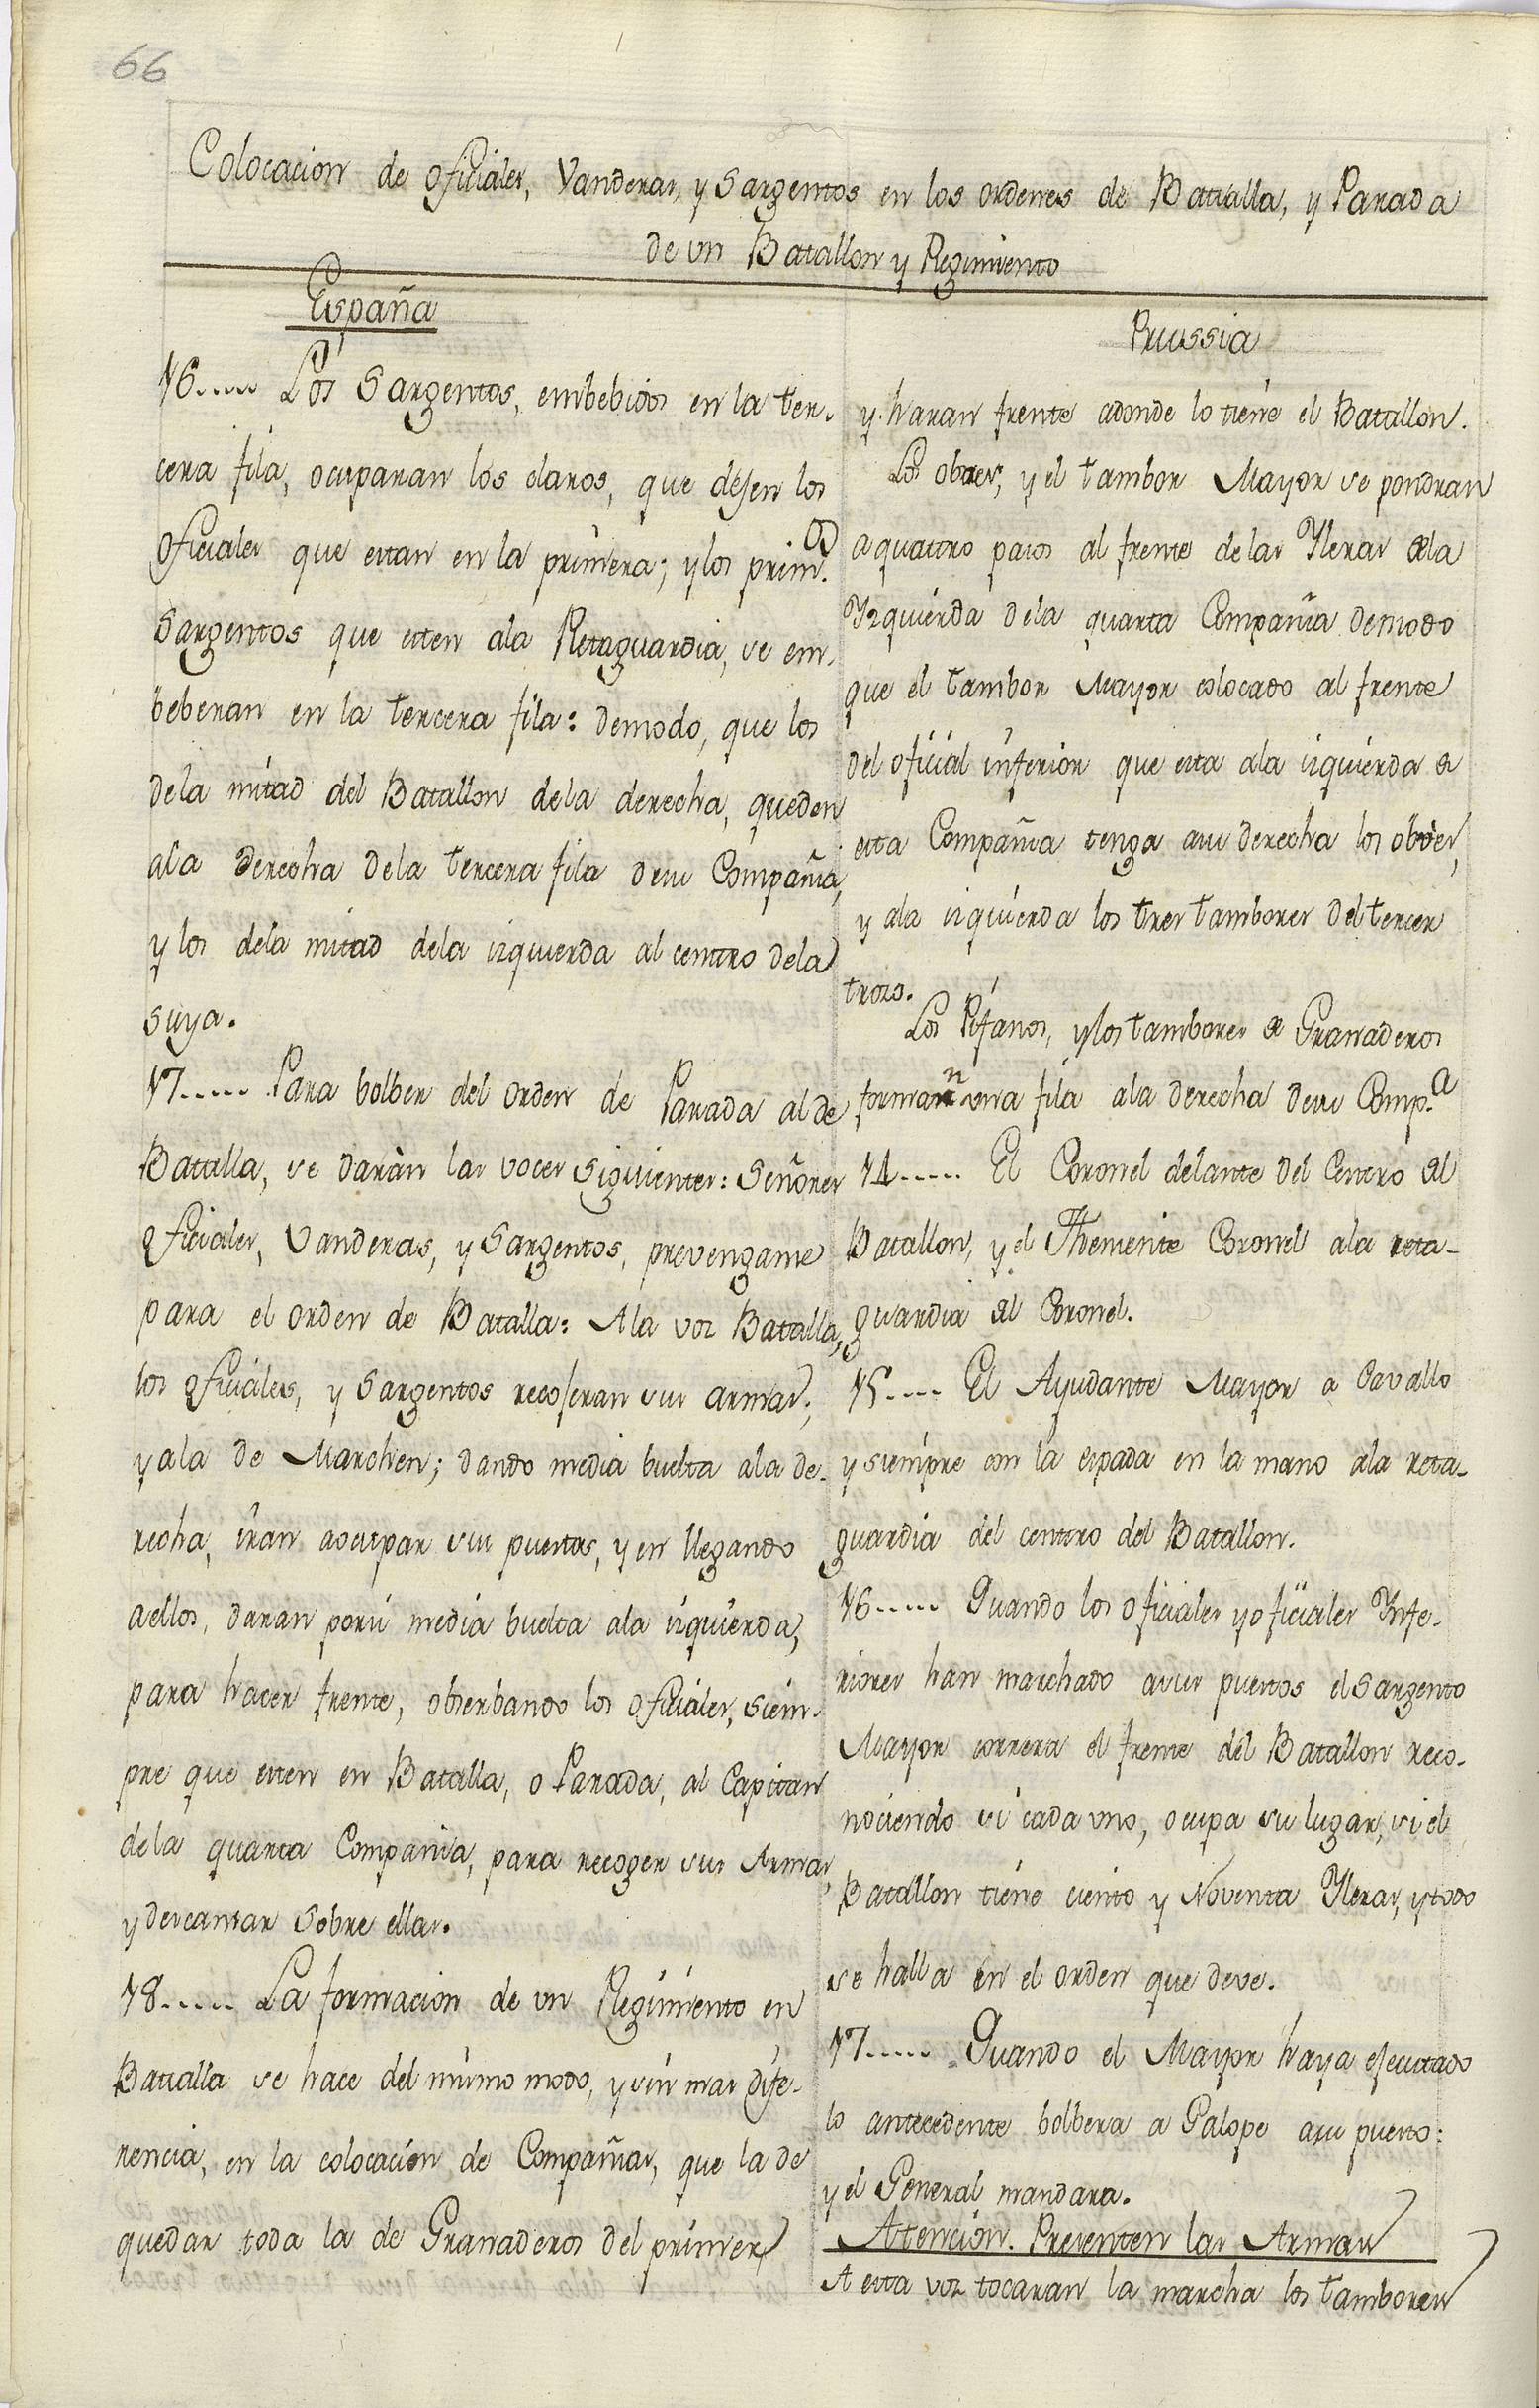 66
Colocacion de oficiales, Vanderas, y Sargentos en los ordenes de Batalla, y Parada
de un Batallon y Regimiento
España
16..... Los Sargentos, embebidos en la ter-
cera fila, ocuparan los claros, que dejen los
oficiales que estan en la primera; y los prim.os
Sargentos que esten ala Retaguardia, se em-
beberan en la tercera fila: demodo, que los
dela mitad del Batallon dela derecha, queden
ala derecha dela tercera fila desu Compañia,
y los dela mitad dela izquierda al centro dela
suya.
17..... Para bolber del orden de Parada al de
Batalla, se daràn las voces siguientes: Señores
oficiales, Vanderas, y Sargentos, prevengame
para el orden de Batalla: Ala voz Batalla,
los oficiales, y Sargentos recojeran sus armas;
y ala de Marchen; dando media buelta ala de-
recha, iran aocupar sus puestos, y en llegando
aellos, daran porsu media buelta ala izquierda,
para hacer frente, obserbando los oficiales, siem-
pre que esten en Batalla, o Parada, al Capitan
dela quarta Compania, para recoger sus Armas,
y descansar sobre ellas.
18..... La formacion de un Regimiento en
Batalla se hace del mismo modo, y sin mas dife-
rencia, en la colocación de Compañias, que la de
quedar toda la de Granaderos del primer
Prussia
y haran frente adonde lo tiene el Batallon.
Los oboes, y el tambor Mayor se pondran
a quattro pasos al frente delas Yleras dela
Yzquierda dela quarta Compañia demodo
que el tambor Mayor colocado al frente
del oficial inferior que esta ala izquierda de
esta Compañia tenga asu derecha los oboes,
y ala izquierda los tres tambores del tercer
trozo.
Los Pifanos, y los tambores de Granaderos
forman una fila ala derecha desu Comp.a
14..... El Coronel delante del Centro del
Batallon, y el Theniente Coronel ala reta-
guardia del Coronel.
15.... El Ayudante Mayor a Cavallo
y siempre con la espada en la mano ala reta-
guardia del centro del Batallon.
16..... Quando los oficiales y oficiales Ynfe-
riores han marchado asus puestos el Sargento
Mayor correra el frente del Batallon reco-
nociendo si cada uno, ocupa su lugar, si el
Batallon tiene ciento y Noventa Yleras, y todo
se halla en el orden que deve.
17..... Quando el Mayor haya ejecutado
lo antecedente bolbera a Galope asu puesto:
y el General mandara.
Atención. Presenten las Armas
A esta voz tocaran la marcha los tambores